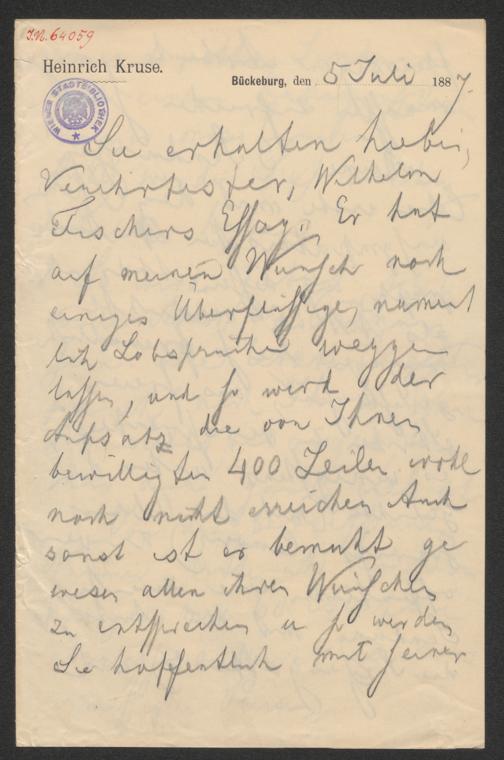 J.N. 64059
Heinrich Kruse.
Bückeburg, den 5 Juli 1887.
WIENER STADTBIBLIOTHEK
Sie erhalten hiebei,
Verehrtester, Wilhelm
Fischers Essay. Er hat
auf meinen Wunsch noch
einiges Überflüssige, nament
lich Lobsprüche wegge
lassen, und so wird der
Aufsatz die von Ihnen
bewilligten 400 Zeilen wohl
noch nicht erreichen Auch
sonst ist er bemüht ge
wesen allen ihren Wünschen
zu entsprechen u so werden
Sie hoffentlich mit seiner